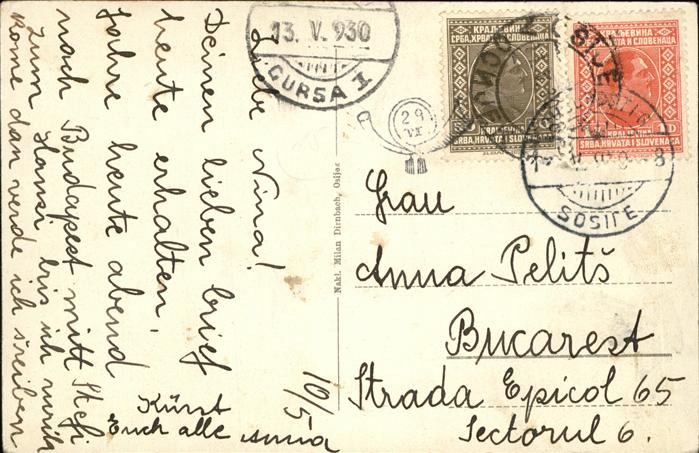 Liebe Nina!
Deinen lieben brief
heute erhalten,
fahre heute abend
nach Budapest mitt Stefi
zum Hansi bis ich
kome dan verde ich šreiben
Küsst
Euch alle
10/5
Nakl. Milan Dirnbach, Osijek
13. V. 930
CURSA I
29
VI
КРАЉЕВИНА
СРБА, ХРВАТА И СЛОВЕНАЦА
KRALJEVINA
SRBA, HRVATA I SLOVENACA
КРАЉЕВИНА
СРБА, ХРВАТА И СЛОВЕНАЦА
KRALJEVINA
SRBA, HRVATA I SLOVENACA
SOSIRE
Frau
Anna Pelitš
Bucarest
Strada Epicol 65
Sectorul 6.